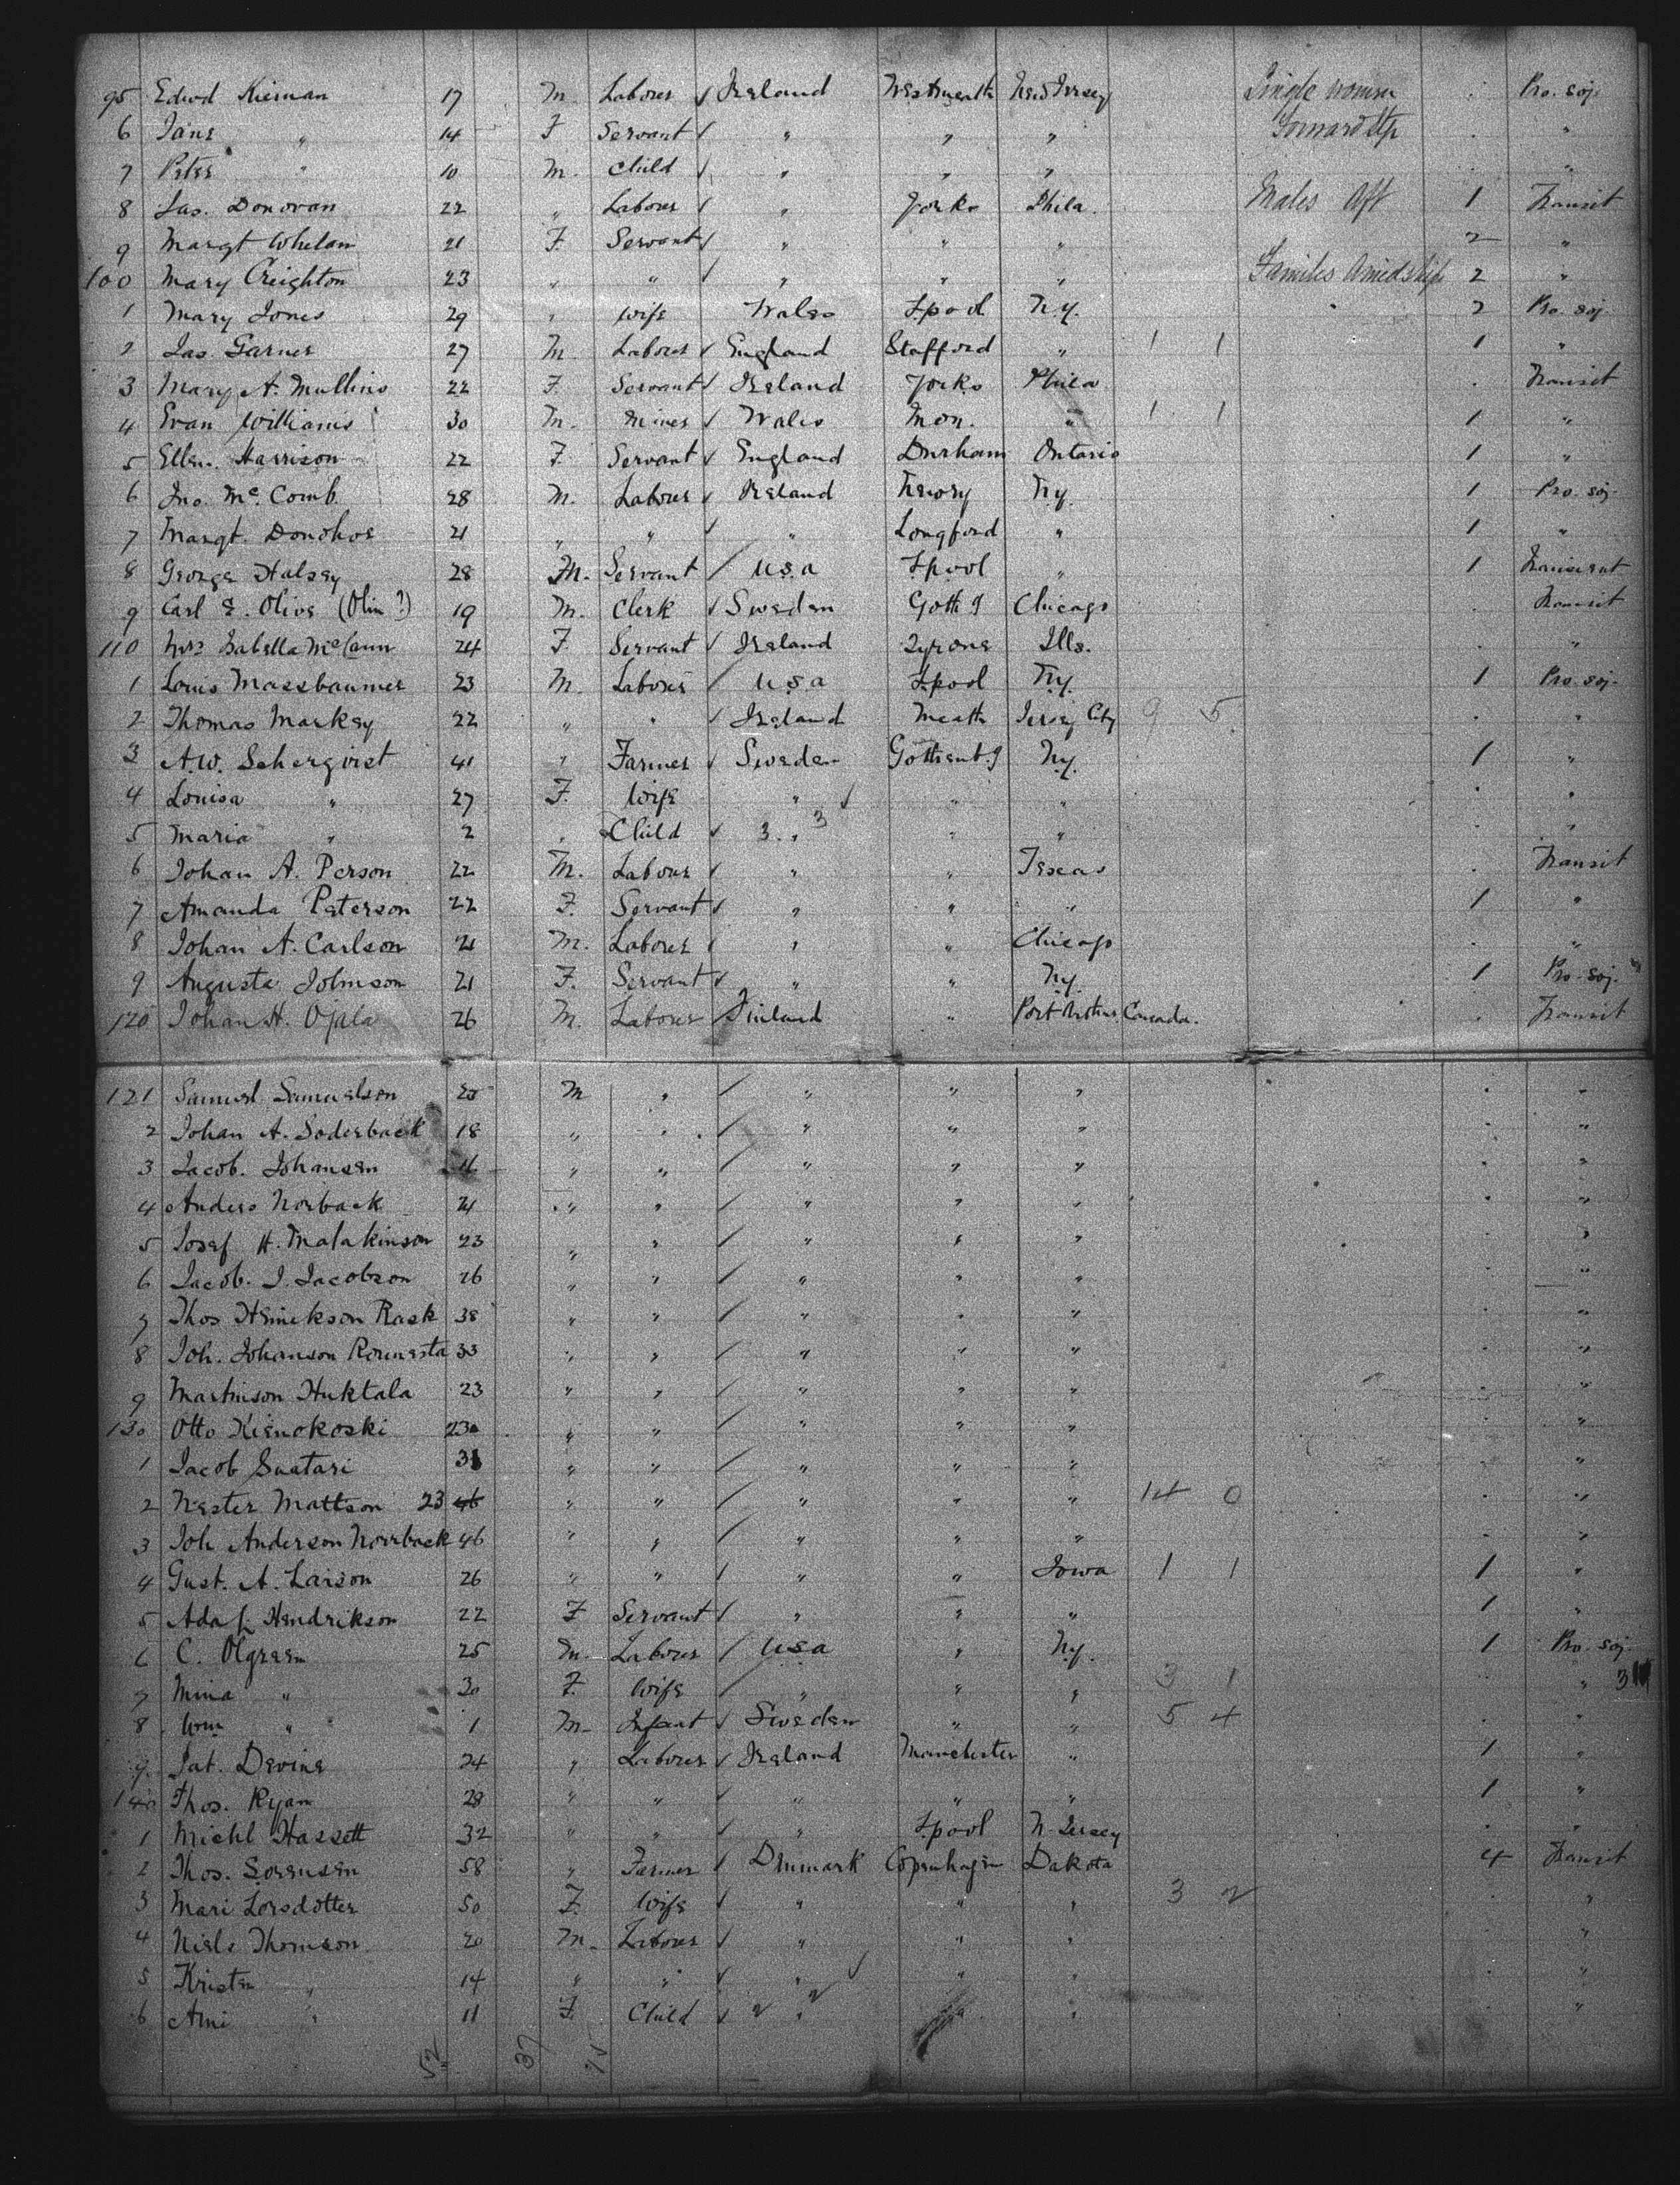 95 Edwd Kiernan 17 M. Laborer ✓ Ireland Westmeath New Jersey Single women . Pro. soj.
6 Jane " 14 F Servant ✓ " " " Forward Stp . "
7 Peter " 10 M. Child ✓ " " " . "
8 Jas. Donovan 22 " Laborer ✓ " Yorks Phila. Males Aft 1 Transit
9 Margt Whelan 21 F. Servant ✓ " " " 2 "
100 Mary Creighton 23 " " ✓ " " " Families Amidships 2 "
1 Mary Jones 29 " Wife Wales L'pool N.Y. 2 Pro. soj.
2 Jas. Garner 27 M. Laborer ✓ England Stafford " 1 1 1 "
3 Mary A. Mullins 22 F. Servant ✓ Ireland Yorks Phila . Transit
4 Evan Williams 30 M. Miner ✓ Wales Mon. " 1 1 1 "
5 Ellen. Harrison 22 F. Servant ✓ England Durham Ontario 1 "
6 Jno. McComb. 28 M. Laborer ✓ Ireland Newry N.Y. 1 Pro. soj.
7 Margt. Donohoe 21 " " ✓ " Longford " 1 "
8 George Halsey 28 M. Servant / USA L'pool " 1 Transient
9 Carl E. Olive (Olin?) 19 M. Clerk ✓ Sweden Gothg Chicago . Transit
110 Mrs Isabella McCann 24 F. Servant ✓ Ireland Tyrone Ills. . "
1 Louis Massbaumer 23 M. Laborer / USA L'pool N.Y. 1 Pro. soj.
2 Thomas Markey 22 " " ✓ Ireland Meath Jersey City 9 5 . "
3 A.W. Seherqvist 41 " Farmer ✓ Sweden Gothenb.g N.Y. 1 "
4 Louisa " 27 F. Wife " ✓ " " . "
5 Maria " 2 " Child ✓ 3 " 3 " " . "
6 Johan A. Person 22 M. Laborer ✓ " " Texas . Transit
7 Amanda Peterson 22 F. Servant ✓ " " " 1 "
8 Johan A. Carlson 21 M. Laborer ✓ " " Chicago . "
9 Augusta Johnson 21 F. Servant ✓ " " N.Y. 1 Pro. soj.
120 Johan H. Ojala 26 M. Laborer / Finland " Port Arthur, Canada. . Transit
121 Samuel Samuelson 25 M " / " " " . "
2 Johan A. Soderback 18 " " / " " " . "
3 Jacob. Johansen " " / " " " . "
4 Anders Norback 21 " " / " " " . "
5 Josef H. Malakinson 23 " " / " " " . "
6 Jacob. J. Jacobson 26 " " / " " " . "
7 Thos Heinekson Rask 38 " " / " " " . "
8 Joh. Johanson 33 " " / " " " . "
9 Martinson Huktala 23 " " / " " " . "
130 Otto Kienokoski 23 " " / " " " . "
1 Jacob Suatari 31 " " / " " " . "
2 Nester Mattson 23 46 " " / " " " 14 0 . "
3 Joh Anderson Norrback 46 " " / " " " . "
4 Gust. A. Larson 26 " " / " " Iowa 1 1 1 "
5 Ada f. Hendrikson 22 F Servant / " " " 1 "
6 C. Olgreen 25 M. Laborer / USA " N.Y. 1 Pro. soj.
7 Mina " 30 F. Wife / " " " 3 1 . "
8 Wm " 1 M. Infant ✓ Sweden " " 5 4 . "
9 Pat. Devine 24 " Laborer ✓ Ireland Manchester " 1 "
140 Thos. Ryan 28 " " ✓ " " " 1 "
1 Michl Hassett 32 " " ✓ " L'pool N. Jersey . "
2 Thos. Sorensen 58 " Farmer ✓ Denmark Copenhagen Dakota 4 Transit
3 Mari Lorsdotter 50 F. Wife ✓ " " " 3 2 . "
4 Niels Thomson 20 M. Laborer ✓ " " " . "
5 Kristen " 14 " " ✓ " ✓ " " . "
6 Ami " 11 F. Child ✓ 2 " 2 " " . "
52 37 15